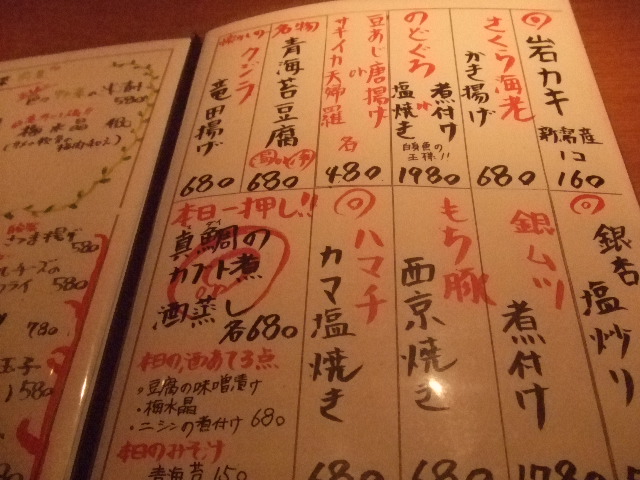 岩カキ
新潟産
1コ
160
さくら海老
かき揚げ
680
のどぐろ
煮付け
or
塩焼き
白身魚の
王様!!
1980
豆あじ唐揚げ
or
サキイカ天婦羅
各
480
名物
青海苔豆腐
680
クジラ
竜田揚げ
680
銀杏
塩炒り
銀ムツ
煮付け
1780
もち豚
西京焼き
680
ハマチ
カマ塩焼き
680
本日一押し!!
真鯛の
カブト煮
or
酒蒸し
各680
本日の酒あて3点
・豆腐の味噌漬け
・梅水晶
・ニシンの煮付け 680
本日のみそ汁
青海苔 150
580
梅水晶
さつま揚げ
580
チーズの
フライ 580
780
玉子
580